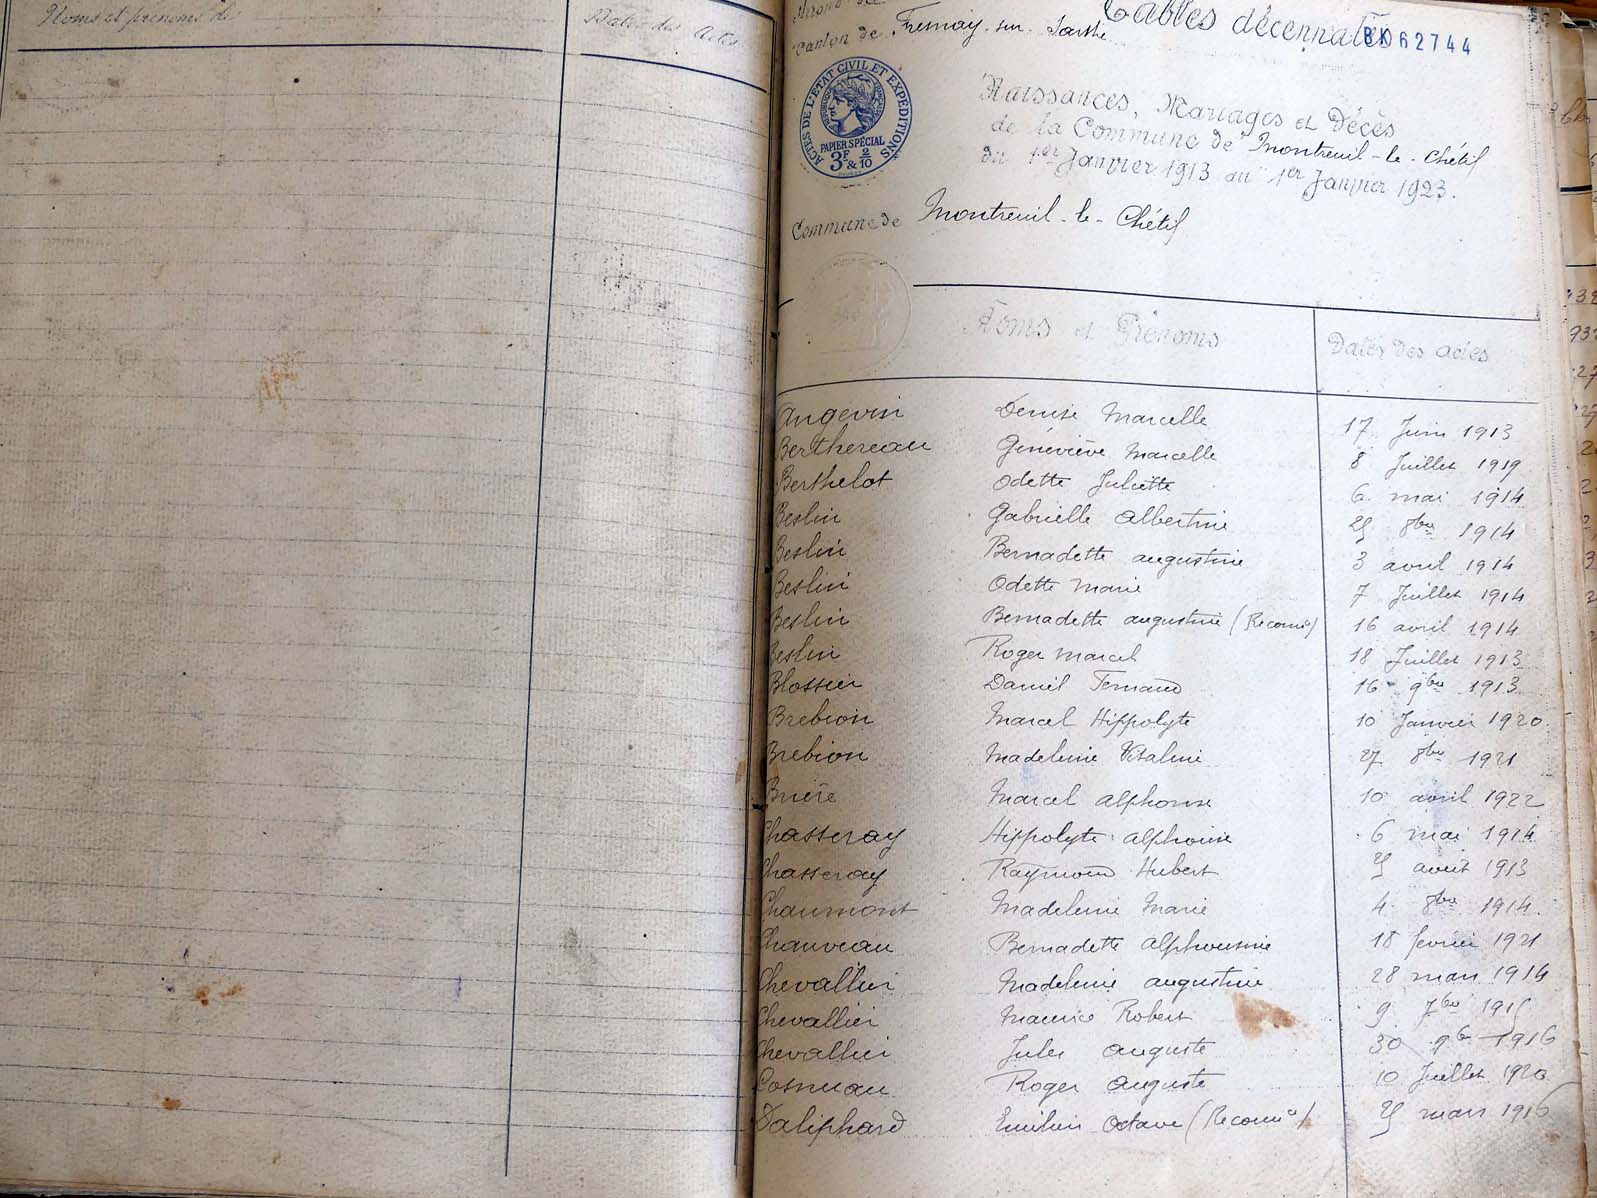 Noms et prénoms des
Dates des Actes
Canton de Fresnay-sur-Sarthe
Tables décennales
BK 62744
ACTES DE L'ETAT CIVIL ET EXPÉDITIONS
PAPIER SPÉCIAL
3F & 2/10
Naissances, Mariages et Décès
de la Commune de Montreuil-le-Chétif
du 1er Janvier 1913 au 1er Janvier 1923.
Commune de Montreuil-le-Chétif
Noms et Prénoms Dates des actes
Angevin Denise Marcelle 17 Juin 1913
Berthereau Géneviève Marcelle 8 Juillet 1919
Berthelot Odette Juliette 6 mai 1914
Beslin Gabrielle Albertine 25 8bre 1914
Beslin Bernadette Augustine 3 avril 1914
Beslin Odette Marie 7 Juillet 1914
Beslin Bernadette Augustine (Reconnce) 16 avril 1914
Beslin Roger Marcel 18 Juillet 1913
Blossier Daniel Fernand 16 9bre 1913
Brebion Marcel Hippolyte 10 Janvier 1920
Brebion Madeleine Vitaline 27 8bre 1921
Brière Marcel Alphonse 10 avril 1922
Chasseray Hippolyte Alphonse 6 mai 1914
Chasseray Raymond Hubert 25 août 1913
Chaumont Madeleine Marie 4 8bre 1914
Chauveau Bernadette Alphonsine 18 février 1921
Chevallier Madeleine Augustine 28 mars 1914
Chevallier Maurice Robert 9 7bre 1915
Chevallier Jules Auguste 30 9bre 1916
Cosnuau Roger Auguste 10 Juillet 1920
Daliphard Emilien Octave (Reconnce) 25 mars 1916